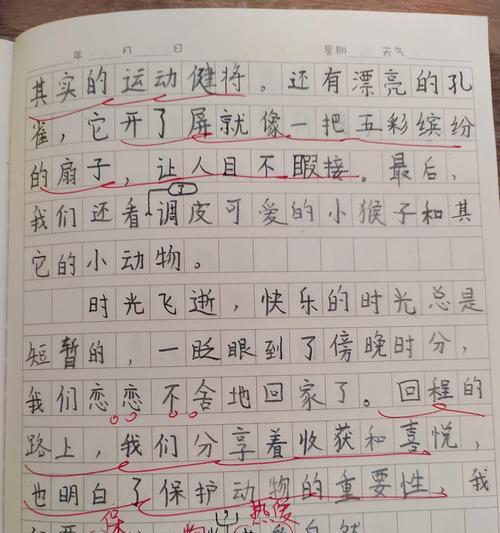 年 月 日 星期 天气
其实的运动健将。还有漂亮的孔
雀，它开了屏就像一把五彩缤纷
的扇子，让人目不暇接。最后，
了
我们还看调皮可爱的小猴子和其
它的小动物。
时光飞逝，快乐的时光总是
短暂的，一眨眼到了傍晚时分，
我们恋恋不舍地回家了。回程的
路上，我们分享着收获和喜悦，
也明白了保护动物的重要性，我
保 热爱
自然